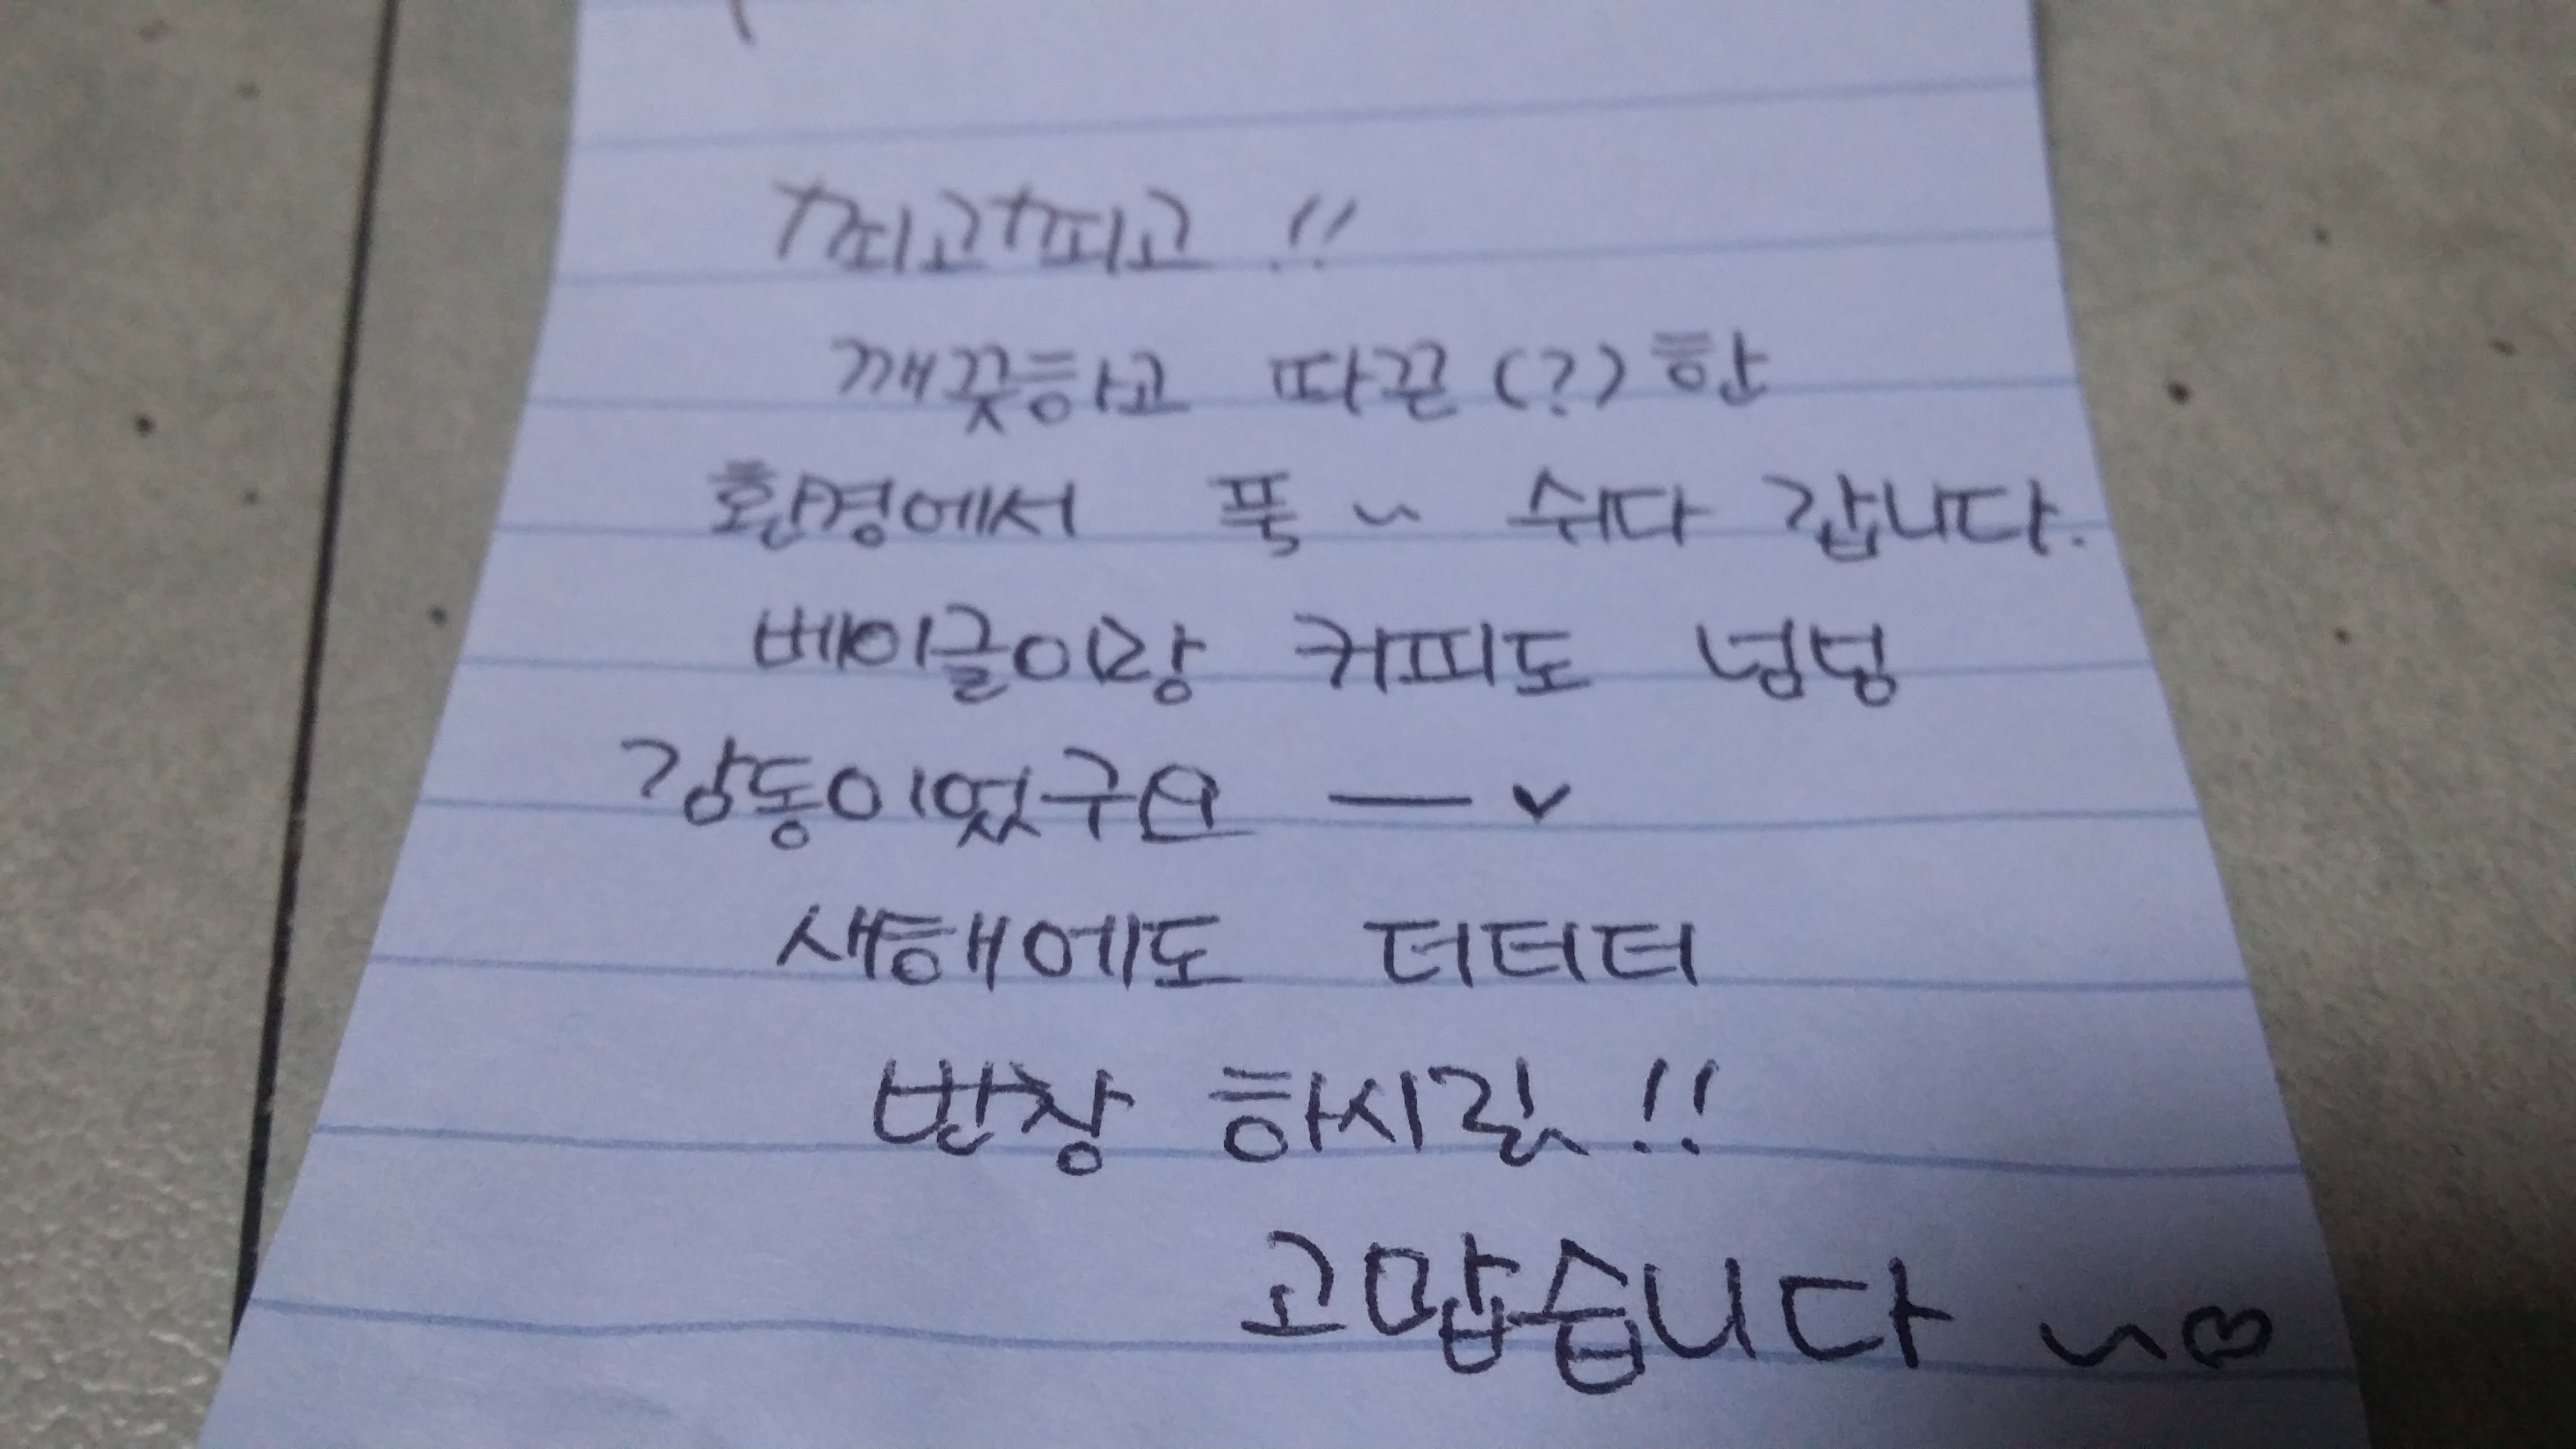 깨끗하고 따끈(?)한
환경에서 푹~ 쉬다 갑니다.
베이글이랑 커피도 넝덩
감동이었구요 —✓
새해에도 더더더
번창 하시길!!
고맙습니다 ~♡